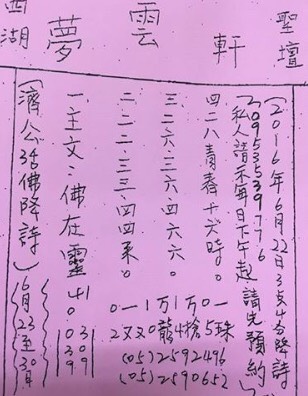 西湖 夢雲軒 聖壇
〔2016年6月22日3支4夯降詩〕
0953539776
〔私人請示每日下午起請先預約〕
四二八青春十六時。
三二六、三六、四六六。
二二二、三三、四四來。
一、主文：佛在靈山。
〔濟公活佛降詩〕6月23至30日
41 03
0 30
39 99
0一1万1万0一
2又又0龍4槍5珠
(05)2592496
(05)2590652